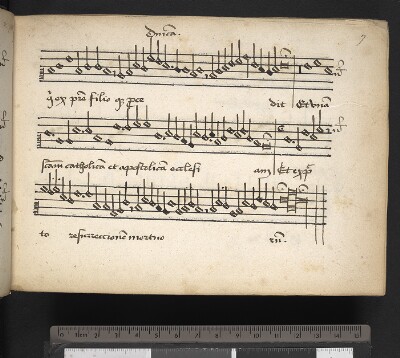 dnica.
q ex pre filio qz pce dit Et una
scam catholica et apostolica ecclesi am Et exp
to resurreccione mortuo ru.